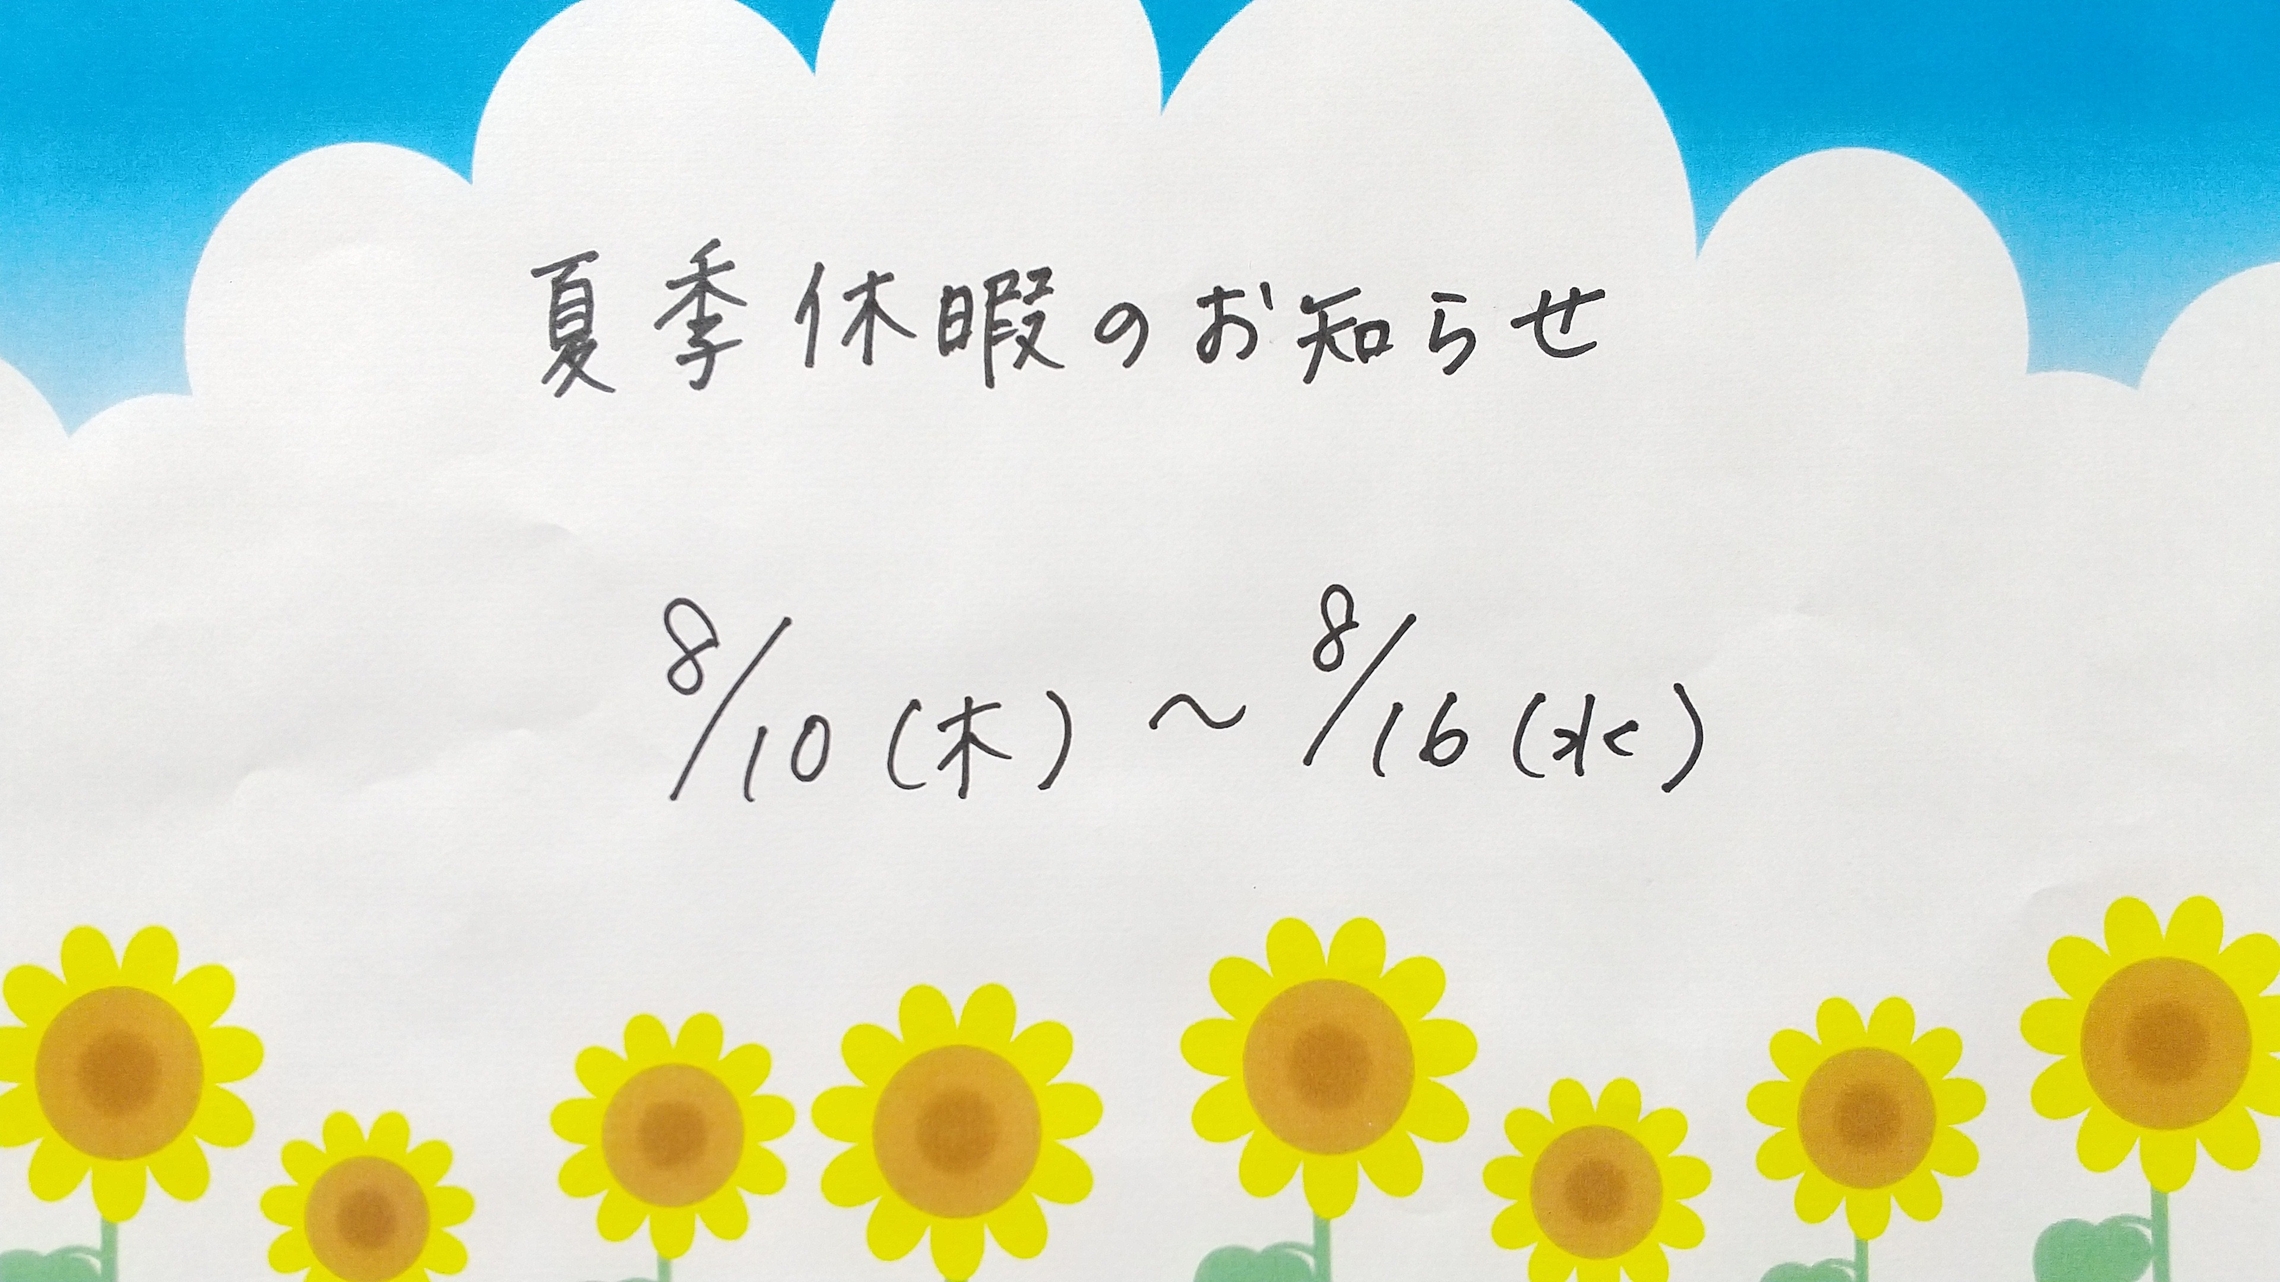 夏季休暇のお知らせ
8/10(木)～8/16(水)